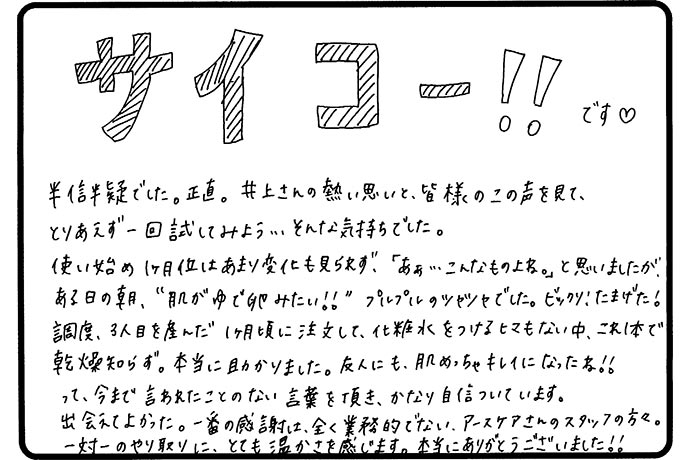 サイコー!! です♡
半信半疑でした。正直。井上さんの熱い思いと、皆様のこの声を見て、
とりあえず一回試してみよう… そんな気持ちでした。
使い始め1ヶ月位はあまり変化も見られず、「あぁ…こんなものよね。」と思いましたが、
ある日の朝、“肌がゆで卵みたい!!” プルプルのツヤツヤでした。ビックリ!たまげた!
調度、3人目を産んだ1ヶ月頃に注文して、化粧水をつけるヒマもない中、これ1本で
乾燥知らず。本当に助かりました。友人にも、肌めっちゃキレイになったね!!
って、今まで言われたことのない言葉を頂き、かなり自信ついています。
出会えてよかった。一番の感謝は、全く業務的でない、アースケアさんのスタッフの方々。
一対一のやり取りに、とても温かさを感じます。本当にありがとうございました!!